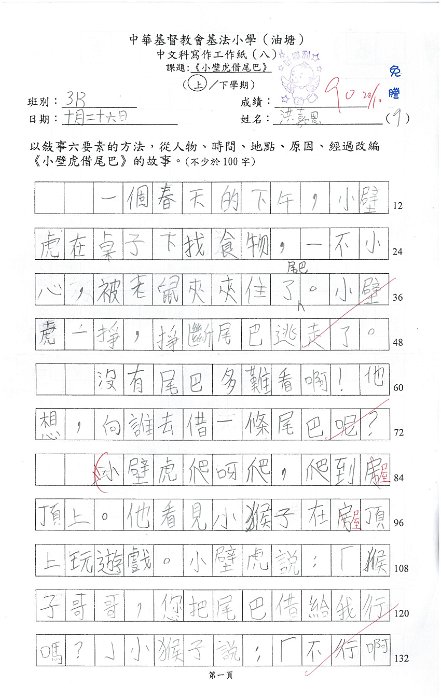 中華基督教會基法小學（油塘）
中文科寫作工作紙（八）
課題：《小壁虎借尾巴》
（上／下學期）
班別：3B
成績：90 20/1
免謄
日期：十月二十六日
姓名：洪嘉恩 (9)
以敍事六要素的方法，從人物、時間、地點、原因、經過改編
《小壁虎借尾巴》的故事。（不少於100字）
一個春天的下午，小壁 12
虎在桌子下找食物，一不小 24
尾巴
心，被老鼠夾夾住了。小壁 36
虎一掙，掙斷尾巴逃走了。 48
沒有尾巴多難看啊！他 60
想，向誰去借一條尾巴呢？ 72
小壁虎爬呀爬，爬到屋 84
頂上。他看見小猴子在屋頂 96
上玩遊戲。小壁虎說：「猴 108
子哥哥，您把尾巴借給我行 120
嗎？」小猴子說：「不行啊 132
第一頁